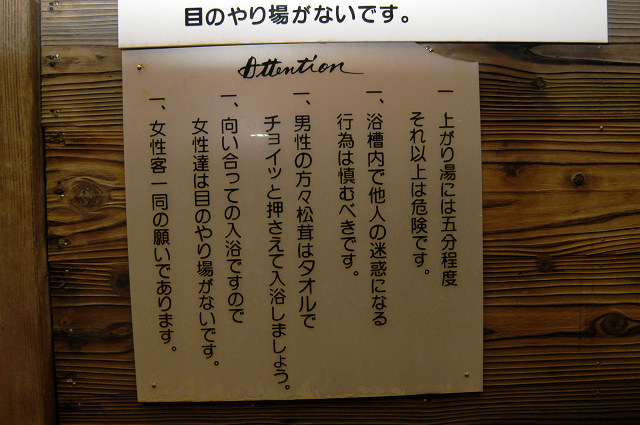 目のやり場がないです。
Attention
一 上がり湯には五分程度
それ以上は危険です。
一、浴槽内で他人の迷惑になる
行為は慎むべきです。
一、男性の方々松茸はタオルで
チョイッと押さえて入浴しましょう。
一、向い合っての入浴ですので
女性達は目のやり場がないです。
一、女性客一同の願いであります。